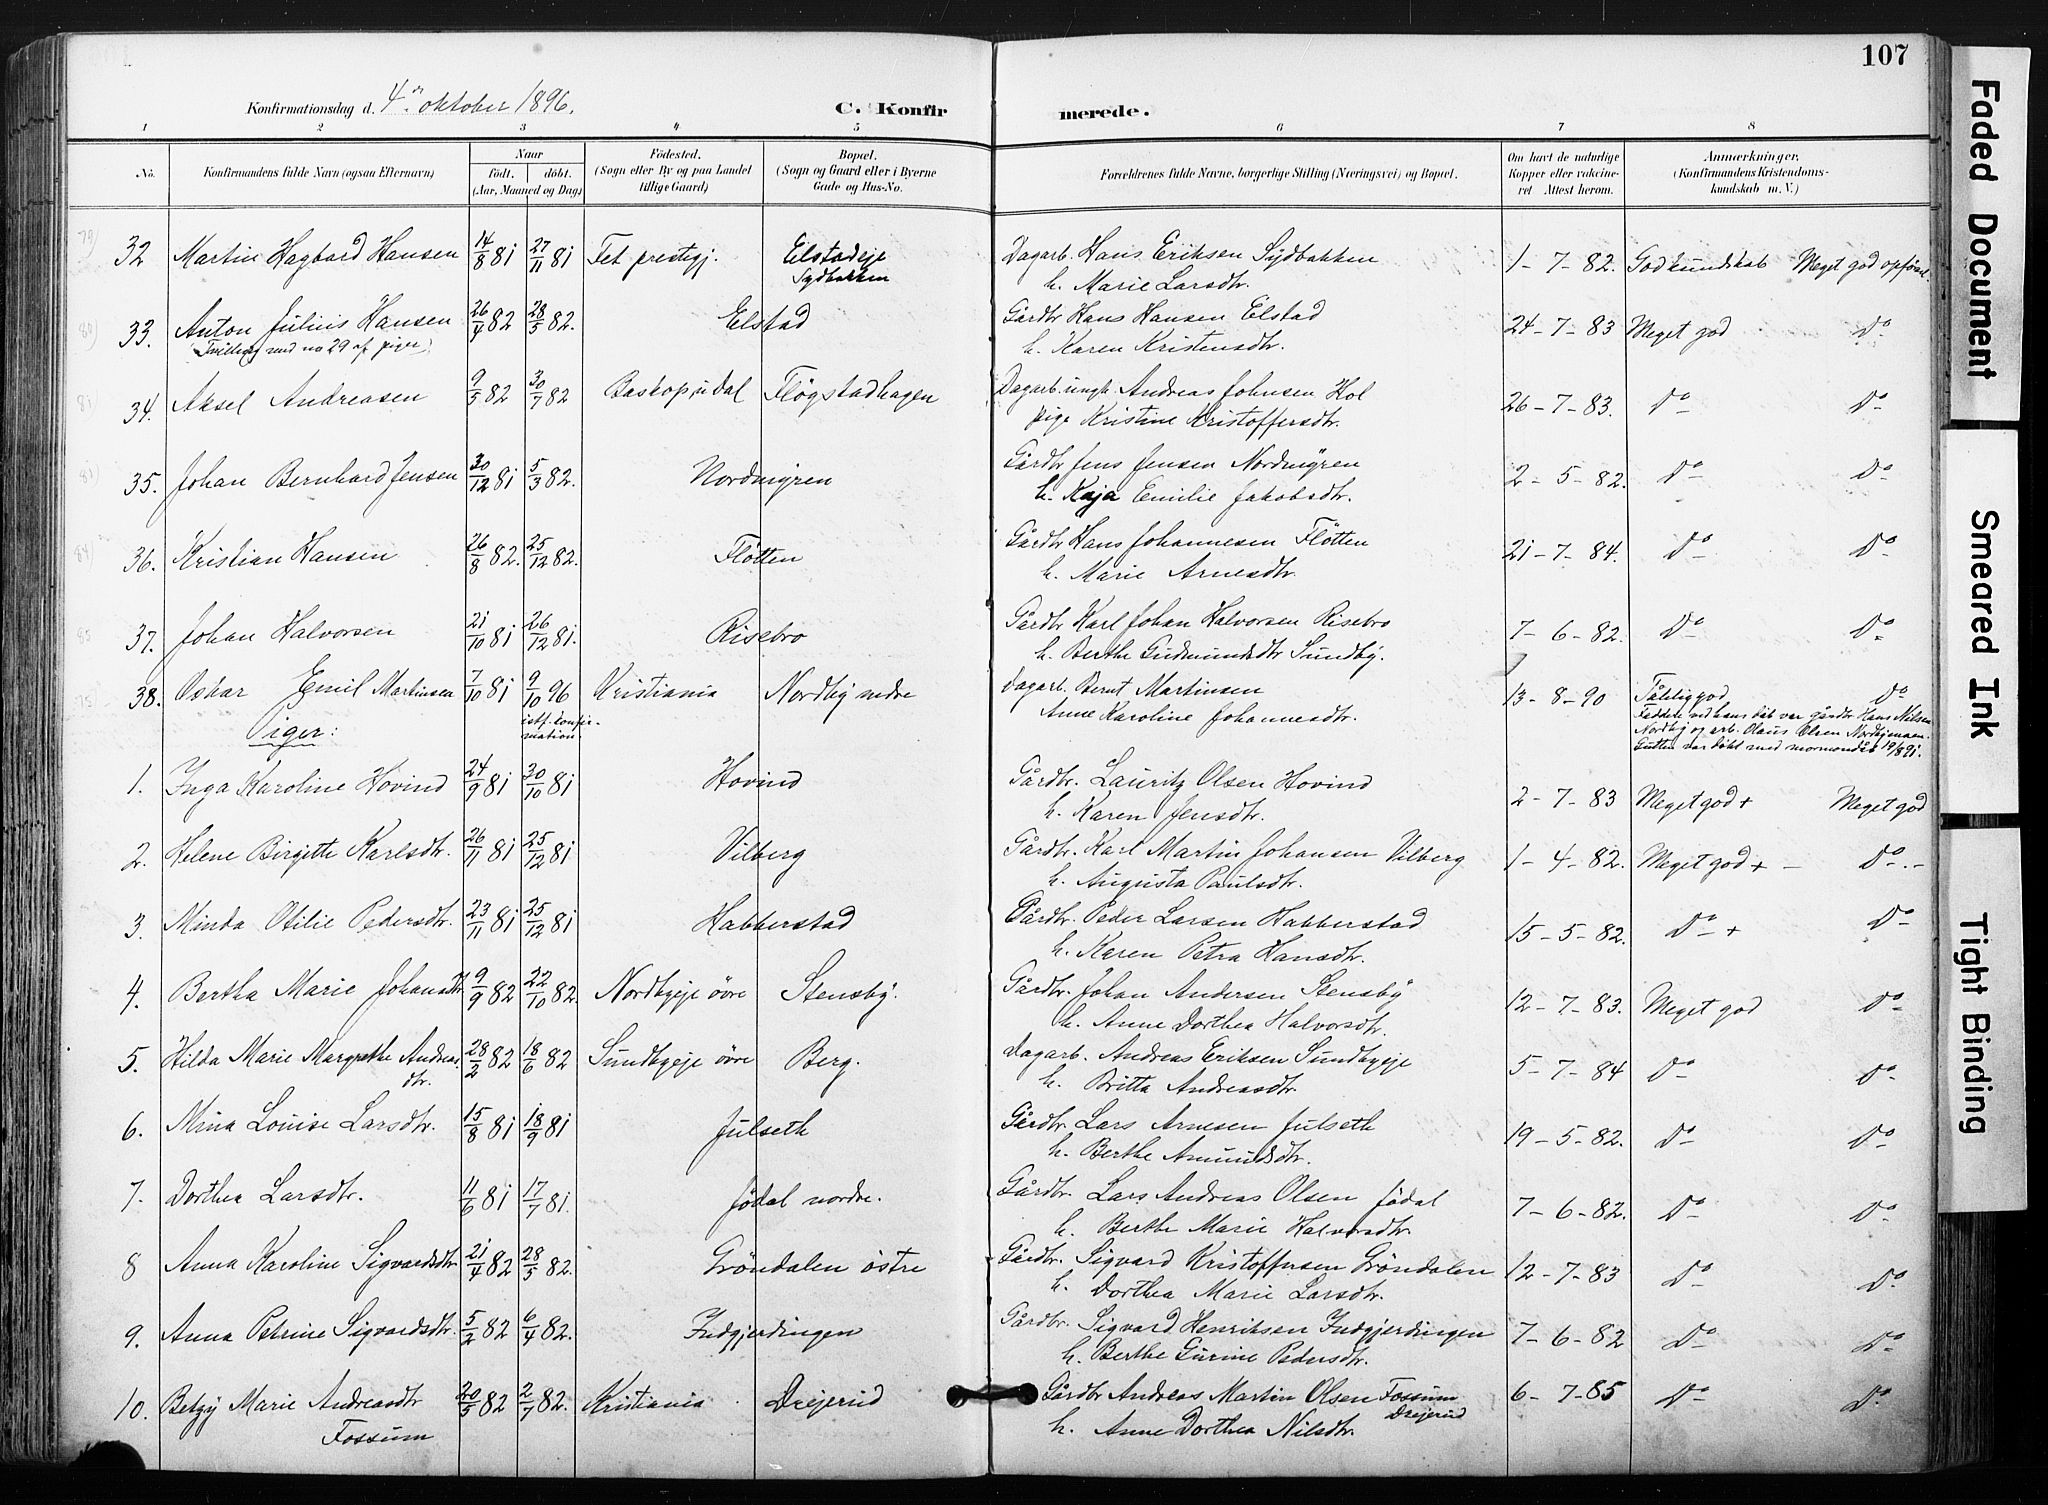 107
Konfirmationsdag d. 4de oktober 1896.
C. Konfirmerede.
1 2 3 4 5 6 7 8
No. Konfirmandens fulde Navn (ogsaa Efternavn)
Naar
født. døbt.
(Aar, Maaned og Dag)
Fødested.
(Sogn eller By og paa Landet
tillige Gaard)
Bopæl.
(Sogn og Gaard eller i Byerne
Gade og Hus-No.
Forældrenes fulde Navne, borgerlige Stilling (Næringsvei) og Bopæl.
Om havt de naturlige
Kopper eller vakcine-
ret Attest herom.
Anmærkninger.
(Konfirmandens Kristendoms-
kundskab m. V.)
32 Martin Hagbard Hansen 14/8 81 27/11 81 Fet prestgj. Elstadeje Dagarb. Hans Eriksen Sydbakken 1-7-82. God kundskab Meget god opførsel
Sydbakken h. Marie Larsdtr.
33. Anton Julius Hansen 26/4 82 28/5 82. Elstad Gårdbr Hans Hansen Elstad 24-7-83 Meget god Do
(Tvilling med no 29 af piger) h. Karen Kristensdtr.
34. Aksel Andreasen 9/5 82 30/7 82 Baskopsudal Fløgstadhagen Dagarb. ungk. Andreas Johnsen Hol 26-7-83. Do Do
pige Kristine Kristoffersdtr.
35. Johan Bernhard Jensen 30/12 81 5/3 82. Nordmyren Gårdbr Jens Jensen Nordmyren 2-5-82. Do Do
h. Kaja Emilie Jakobsdtr.
36. Kristian Hansen 26/8 82. 25/12 82. Fløtten Gårdbr Hans Johannesen Fløtten 21-7-84. Do Do
h. Marie Arnesdtr.
37. Johan Halvorsen 21/10 81 26/12 81. Risebro Gårdbr Karl Johan Halvorsen Risebro 7-6-82. Do Do
h. Berthe Gudmundsdtr Sundby.
38. Oskar Emil Martinsen 7/10 81 9/10 96 Kristiania Nordby nedre Dagarb. Bernt Martinsen 13-8-90 Tålelig god. Do
istf. konfir-
mation.
Anne Karoline Johannesdtr.
Faddere ved hans dåb var gårdbr Hans Nilsen
Nordby og arb. Olaus Olsen
Gutten var døbt med mormondåb 19/8 91.
Piger:
1. Inga Karoline Hovind 24/9 81 30/10 81 Hovind Gårdbr. Lauritz Olsen Hovind 2-7-83 Meget god + Meget god
h. Karen Jensdtr.
2. Helene Birgitte Karlsdtr. 26/11 81 25/12 81 Vilberg Gårdbr. Karl Martin Johansen Vilberg 1-4-82. Meget god + - Do -
h. Augusta Paulsdtr.
3. Minda Otilie Pedersdtr. 23/11 81 25/12 81 Habberstad Gårdbr. Peder Larsen Habberstad 15-5-82. Do + Do
h. Karen Petra Hansdtr.
4. Bertha Marie Johansdtr 9/9 82 22/10 82. Nordbyeje øvre Stensby. Gårdbr. Johan Andersen Stensby 12-7-83. Meget god Do
h. Anne Dorthea Halvorsdtr.
5. Hilda Marie Margrethe Andreas- 28/2 82 18/6 82 Sundbyeje øvre Berg. Dagarb. Andreas Eriksen Sundbyeje 5-7-84 Do Do
dtr. h. Britta Andreasdtr.
6. Mina Louise Larsdtr. 15/8 81 18/9 81 Julseth Gårdbr Lars Arnesen Julseth 19-5-82. Do Do
h. Berthe Amundsdtr.
7. Dorthea Larsdtr. 11/6 81 17/7 81. Jødal nordre. Gårdbr. Lars Andreas Olsen Jødal 7-6-82. Do Do
h. Berthe Marie Halvorsdtr.
8 Anna Karoline Sigvardsdtr 21/4 82 28/5 82. Grøndalen østre Gårdbr. Sigvard Kristoffersen Grøndalen 12-7-83 Do Do
h. Dorthea Marie Larsdtr.
9. Anna Petrine Sigvardsdtr. 5/2 82 6/4 82. Indgjerdingen Gårdbr. Sigvard Henriksen Indgjerdingen 7-6-82 Do Do
h. Berthe Gurine Pedersdtr.
10. Betzy Marie Andreasdtr 20/5 82 2/7 82. Kristiania Drejerud Gårdbr Andreas Martin Olsen Fossum 6-7-85 Do Do
Fossum Drejerud
h. Anne Dorthea Nilsdtr.
Faded Document
Smeared Ink
Tight Binding